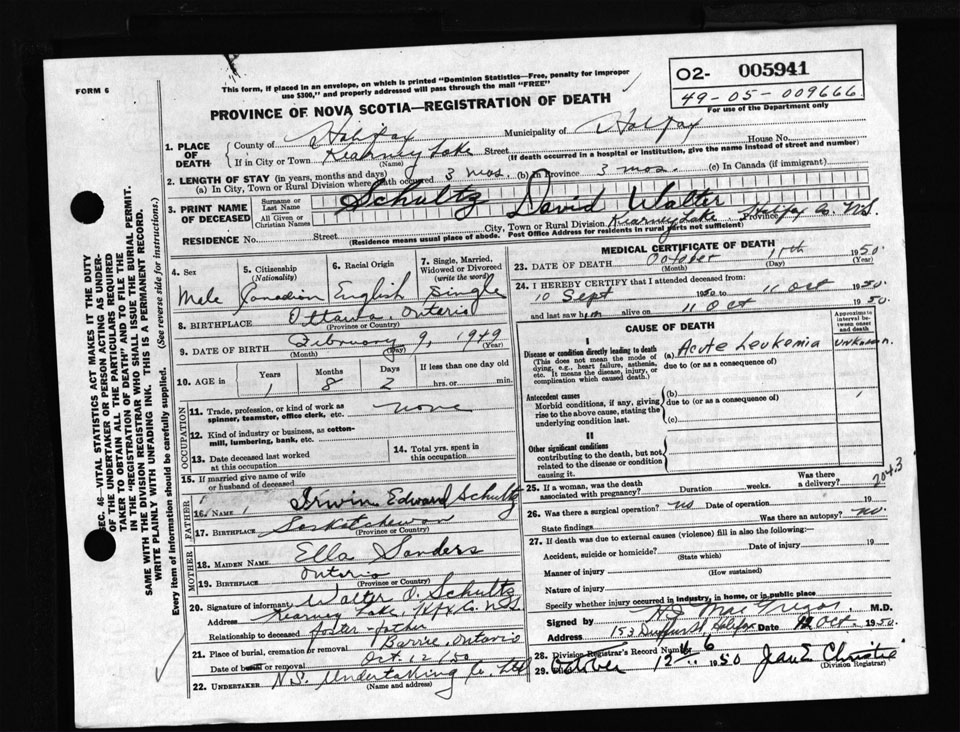 FORM 6
This form, if placed in an envelope, on which is printed "Dominion Statistics—Free, penalty for improper
use $300," and properly addressed will pass through the mail "FREE"
O2- 005941
49-05-009666
For use of the Department only
PROVINCE OF NOVA SCOTIA—REGISTRATION OF DEATH
1. PLACE OF DEATH
County of Halifax Municipality of Halifax
If in City or Town Kearney Lake Street House No.
(Name) (If death occurred in a hospital or institution, give the name instead of street and number)
2. LENGTH OF STAY (in years, months and days)
(a) In City, Town or Rural Division where death occurred 3 mos. (b) in Province 3 mos. (c) In Canada (if immigrant)
3. PRINT NAME OF DECEASED
Surname or Last Name Schultz
All Given or Christian Names David Walter
RESIDENCE No. Street City, Town or Rural Division Kearney Lake Province Halifax Co. N.S.
(Residence means usual place of abode. Post Office Address for residents in rural parts not sufficient)
4. Sex Male
5. Citizenship (Nationality) Canadian
6. Racial Origin English
7. Single, Married, Widowed or Divorced (write the word) Single
8. BIRTHPLACE Ottawa, Ontario
(Province or Country)
9. DATE OF BIRTH February 9, 1949
(Month) (Day) (Year)
10. AGE in Years Months Days If less than one day old
1 8 2 hrs. or min.
OCCUPATION
11. Trade, profession, or kind of work as spinner, teamster, office clerk, etc. none
12. Kind of industry or business, as cotton-mill, lumbering, bank, etc.
13. Date deceased last worked at this occupation
14. Total yrs. spent in this occupation
15. If married give name of wife or husband of deceased
FATHER
16. Name Irwin Edward Schultz
17. BIRTHPLACE Saskatchewan
(Province or Country)
MOTHER
18. MAIDEN NAME Ella Sanders
19. BIRTHPLACE Ontario
(Province or Country)
20. Signature of informant Walter O. Schultz
Address Kearney Lake, Hfx Co. N.S.
Relationship to deceased foster-father
21. Place of burial, cremation or removal Barrie, Ontario
Date of burial or removal Oct. 12/50
22. UNDERTAKER N.S. Undertaking Co. Ltd
(Name and address)
MEDICAL CERTIFICATE OF DEATH
23. DATE OF DEATH October 11th 1950
(Month) (Day) (Year)
24. I HEREBY CERTIFY that I attended deceased from
10 Sept 1950 to 11 Oct 1950
and last saw him alive on 11 Oct 1950
CAUSE OF DEATH
Approximate interval between onset and death
I
Disease or condition directly leading to death
(This does not mean the mode of dying, e.g., heart failure, asthenia, etc. It means the disease, injury, or complication which caused death.)
(a) Acute Leukemia Unknown.
due to (or as a consequence of)
Antecedent causes
Morbid conditions, if any, giving rise to the above cause, stating the underlying condition last.
(b)
due to (or as a consequence of)
(c)
II
Other significant conditions
contributing to the death, but not related to the disease or condition causing it.
25. If a woman, was the death associated with pregnancy? Duration weeks. Was there a delivery?
2043
26. Was there a surgical operation? no Date of operation 19
State findings Was there an autopsy? no.
27. If death was due to external causes (violence) fill in also the following:
Accident, suicide or homicide? Date of injury 19
(State which)
Manner of injury
(How sustained)
Nature of injury
Specify whether injury occurred in industry, in home, or in public place
Signed by MacGregor M.D.
Address 153 Halifax Date Oct. 1950.
28. Division Registrar's Record Number 6
29. October 12 1950 Jean E. Christie
(Division Registrar)
SEC. 46—VITAL STATISTICS ACT MAKES IT THE DUTY
OF THE UNDERTAKER OR PERSON ACTING AS UNDER-
TAKER TO OBTAIN ALL THE PARTICULARS REQUIRED
IN THE "REGISTRATION OF DEATH" AND TO FILE THE
SAME WITH THE DIVISION REGISTRAR WHO SHALL ISSUE THE BURIAL PERMIT.
WRITE PLAINLY WITH UNFADING INK. THIS IS A PERMANENT RECORD.
Every item of information should be carefully supplied. (See reverse side for instructions.)